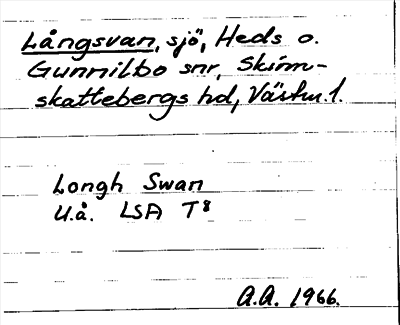 Långsvan, sjö, Heds o.
Gunnilbo snr, Skinn-
skattebergs hd, Västm. l.
Longh Swan
U.å. LSA T8
A.A. 1966.